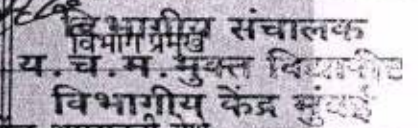 विभागीय संचालक
विभाग प्रमुख
य.च.म.मुक्त विद्यापीठ
विभागीय केंद्र मुंबई